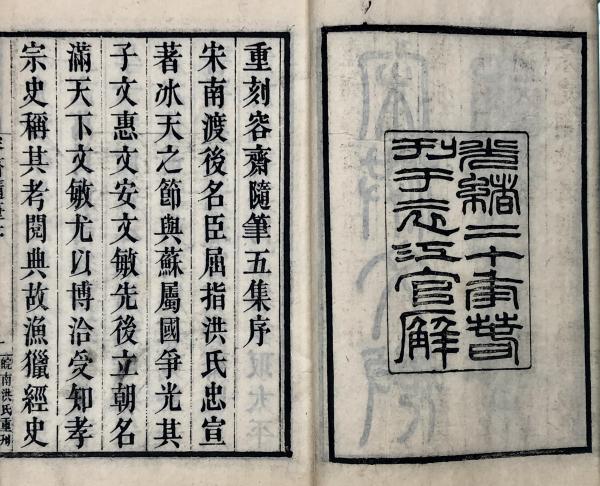 光緒二十年春
刊于元江官廨
重刻容齋隨筆五集序
宋南渡後名臣屈指洪氏忠宣
著冰天之節與蘇屬國爭光其
子文惠文安文敏先後立朝名
滿天下文敏尤以博洽受知孝
宗史稱其考閱典故漁獵經史
皖南洪氏重刊